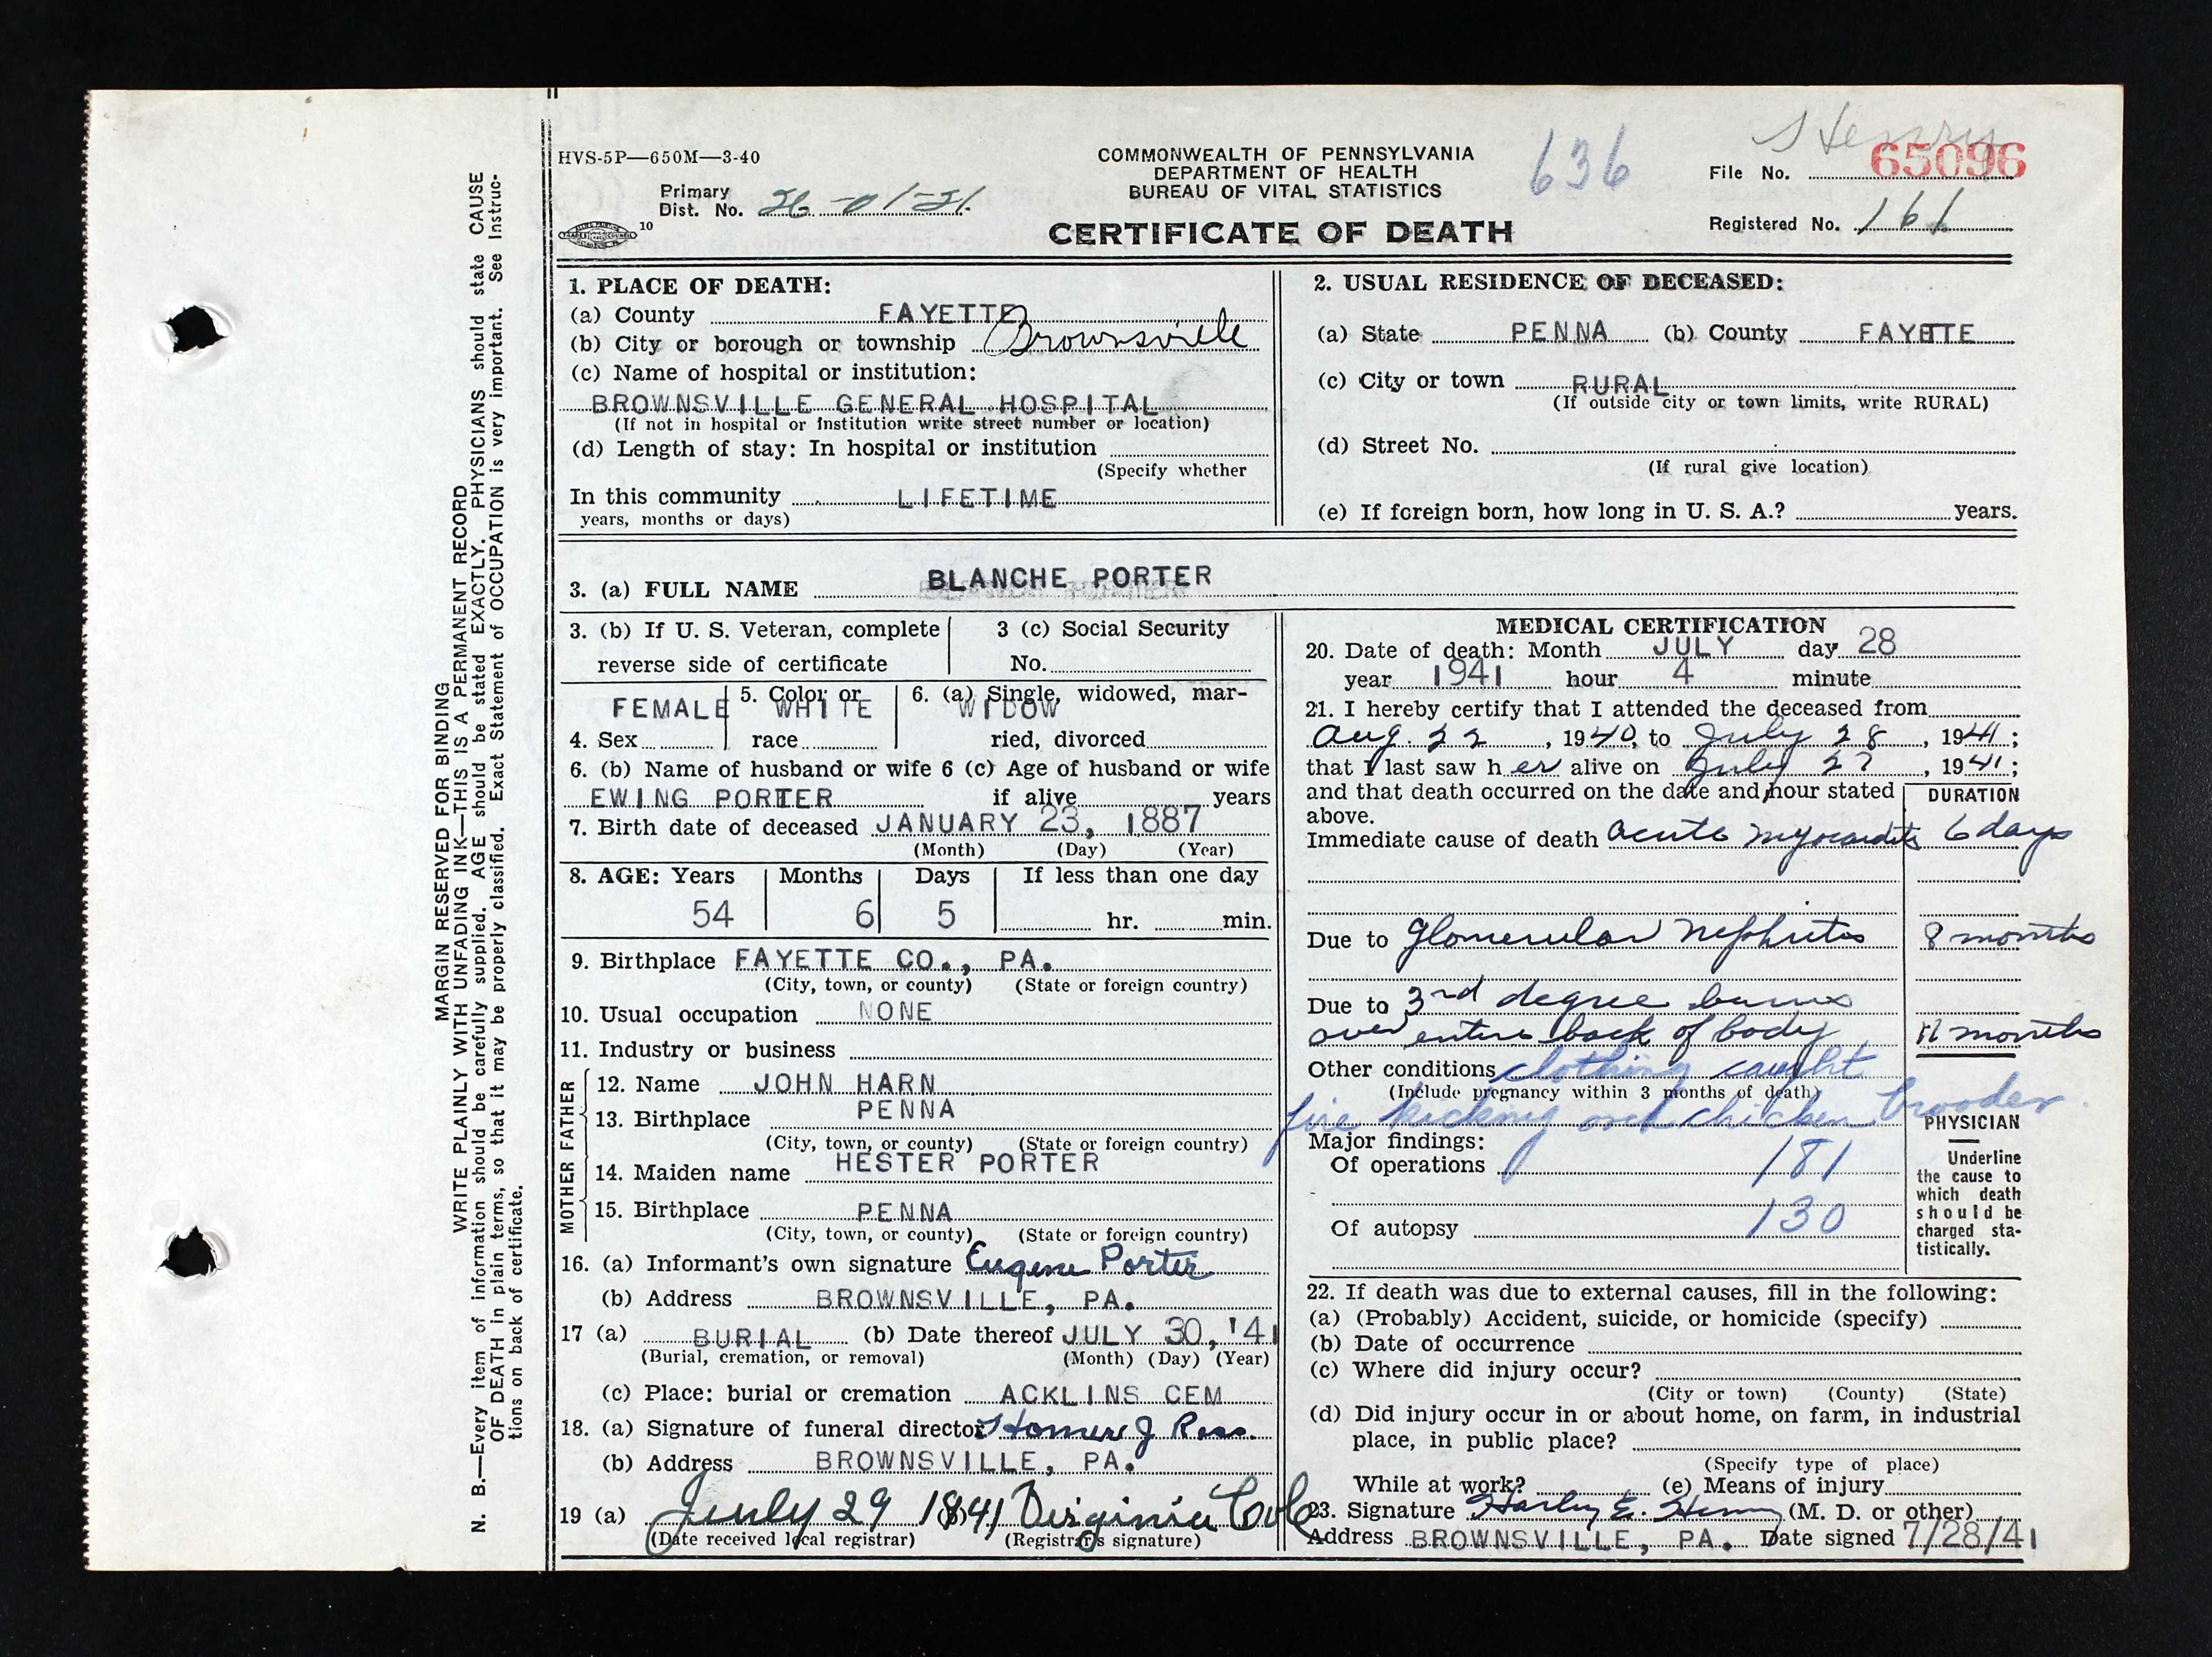 HVS-5P—650M—3-40
COMMONWEALTH OF PENNSYLVANIA
DEPARTMENT OF HEALTH
BUREAU OF VITAL STATISTICS
CERTIFICATE OF DEATH
636
Henry
File No. 65096
Registered No. 161
Primary
Dist. No. 26-01-21
10
MARGIN RESERVED FOR BINDING
WRITE PLAINLY WITH UNFADING INK—THIS IS A PERMANENT RECORD
N. B.—Every item of information should be carefully supplied. AGE should be stated EXACTLY. PHYSICIANS should state CAUSE
OF DEATH in plain terms, so that it may be properly classified. Exact Statement of OCCUPATION is very important. See Instruc-
tions on back of certificate.
1. PLACE OF DEATH:
(a) County FAYETTE
(b) City or borough or township Brownsville
(c) Name of hospital or institution:
BROWNSVILLE GENERAL HOSPITAL
(If not in hospital or institution write street number or location)
(d) Length of stay: In hospital or institution
(Specify whether
In this community LIFETIME
years, months or days)
2. USUAL RESIDENCE OF DECEASED:
(a) State PENNA (b) County FAYETTE
(c) City or town RURAL
(If outside city or town limits, write RURAL)
(d) Street No.
(If rural give location)
(e) If foreign born, how long in U. S. A.? years.
3. (a) FULL NAME BLANCHE PORTER
3. (b) If U. S. Veteran, complete
reverse side of certificate
3 (c) Social Security
No.
4. Sex FEMALE
5. Color or
race WHITE
6. (a) Single, widowed, mar-
ried, divorced WIDOW
6. (b) Name of husband or wife 6 (c) Age of husband or wife
EWING PORTER if alive years
7. Birth date of deceased JANUARY 23, 1887
(Month) (Day) (Year)
8. AGE: Years Months Days If less than one day
54 6 5 hr. min.
9. Birthplace FAYETTE CO., PA.
(City, town, or county) (State or foreign country)
10. Usual occupation NONE
11. Industry or business
FATHER
12. Name JOHN HARN
13. Birthplace PENNA
(City, town, or county) (State or foreign country)
MOTHER
14. Maiden name HESTER PORTER
15. Birthplace PENNA
(City, town, or county) (State or foreign country)
16. (a) Informant's own signature Eugene Porter
(b) Address BROWNSVILLE, PA.
17 (a) BURIAL (b) Date thereof JULY 30, '41
(Burial, cremation, or removal) (Month) (Day) (Year)
(c) Place: burial or cremation ACKLINS CEM
18. (a) Signature of funeral director Homer J Ross.
(b) Address BROWNSVILLE, PA.
19 (a) July 29 1941 Virginia Cole
(Date received local registrar) (Registrar's signature)
MEDICAL CERTIFICATION
20. Date of death: Month JULY day 28
year 1941 hour 4 minute
21. I hereby certify that I attended the deceased from
Aug. 22, 1940, to July 28, 1941;
that I last saw her alive on July 27, 1941;
and that death occurred on the date and hour stated
above.
DURATION
Immediate cause of death acute myocarditis 6 days
Due to Glomerular Nephritis 8 months
Due to 3rd degree burns
over entire back of body 11 months
Other conditions clothing caught
(Include pregnancy within 3 months of death)
fire kicking over chicken brooder.
Major findings:
Of operations 181
130
Of autopsy
PHYSICIAN
Underline
the cause to
which death
should be
charged sta-
tistically.
22. If death was due to external causes, fill in the following:
(a) (Probably) Accident, suicide, or homicide (specify)
(b) Date of occurrence
(c) Where did injury occur?
(City or town) (County) (State)
(d) Did injury occur in or about home, on farm, in industrial
place, in public place?
(Specify type of place)
While at work? (e) Means of injury
23. Signature Harley E. Henry (M. D. or other)
Address BROWNSVILLE, PA. Date signed 7/28/41